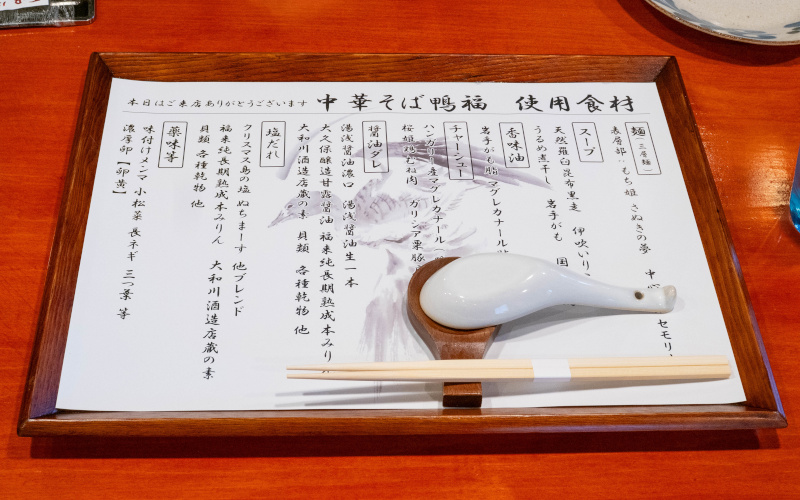 本日はご来店ありがとうございます 中華そば鴨福 使用食材
麺(三層麺)
表層部:もち姫 さぬきの夢
セモリ
スープ
天然羅臼昆布黒走 伊吹いり
うるめ煮干し 岩手がも 国
香味油
岩手がも脂 マグレカナール
チャーシュー
ハンガリー産マグレカナール
桜姫鶏むね肉 ガリシア栗豚
醤油ダレ
湯浅醤油濃口 湯浅醤油生一本
大久保醸造甘露醤油 福来純長期熟成本みりん
大和川酒造店蔵の素 貝類 各種乾物 他
塩だれ
クリスマス島の塩 ぬちまーす 他ブレンド
福来純長期熟成本みりん 大和川酒造店蔵の素
貝類 各種乾物 他
薬味等
味付けメンマ 小松菜 長ネギ 三つ葉 等
濃厚卵【卵黄】